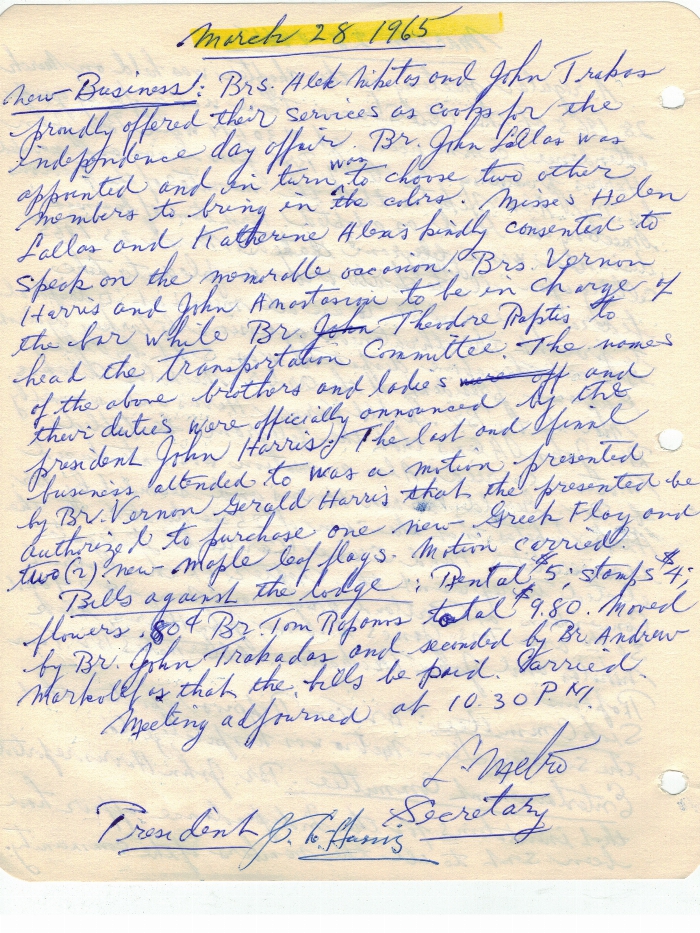 March 28 1965
New Business: Brs. Alek Niketas and John Trakas
proudly offered their services as cooks for the
independence day affair. Br. John Lallas was
appointed and in turn was to choose two other
members to bring in the colors. Misses Helen
Lallas and Katherine Alexis kindly consented to
speak on the memorable occasion. Brs. Vernon
Harris and John Anastasiou to be in charge of
the bar while Br. John Theodore Raptis to
head the transportation Committee. The names
of the above brothers and ladies were off and
their duties were officially announced by the
president John Harris. The last and final
business attended to was a motion presented
by Br. Vernon Gerald Harris that the presented be
authorized to purchase one new Greek Flag and
two (2) new maple leaf flags. Motion carried.
Bills against the lodge: Rental $5; stamps $4;
flowers .80¢ Br. Tom total $9.80. Moved
by Br. John Trakadas and seconded by Br. Andrew
that the bills be paid. Carried.
Meeting adjourned at 10.30 P.M.
Secretary
President J. Harris